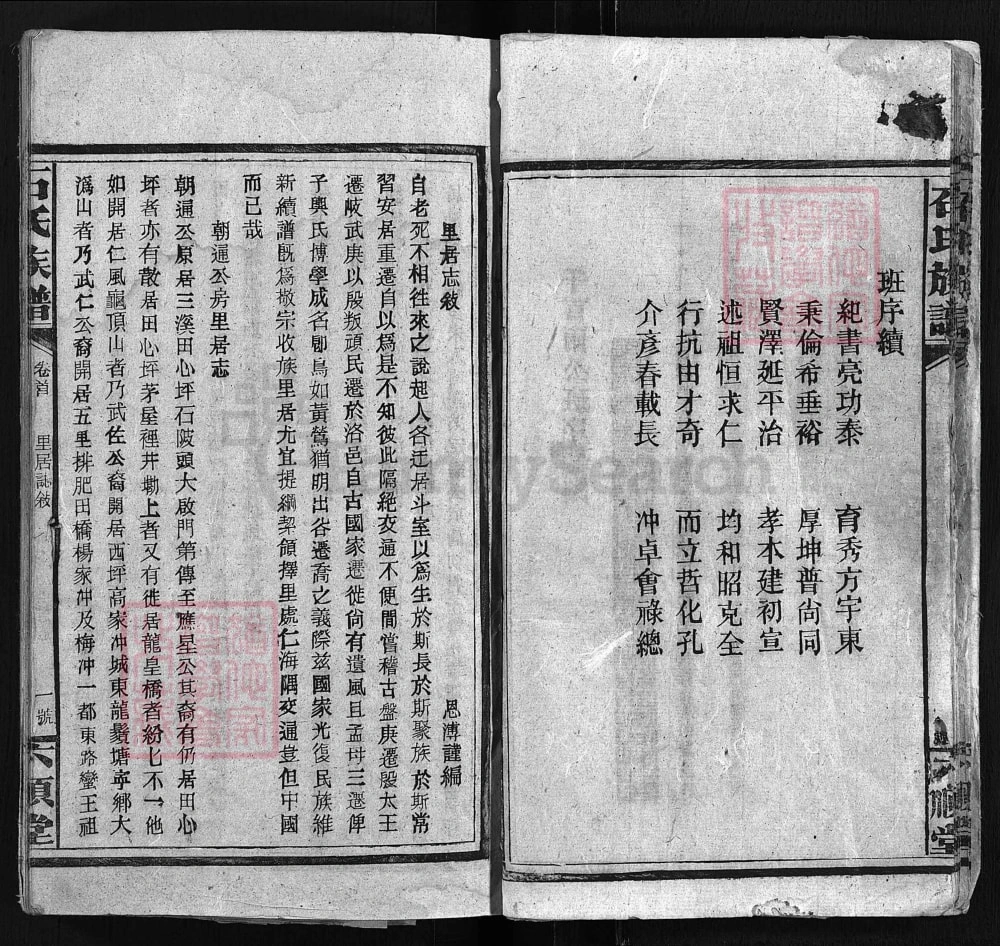 石氏族譜
班序續
紀書亮功泰 育秀方宇東
秉倫希垂裕 厚坤普尙同
賢澤延平治 孝本建初宣
述祖恒求仁 均和昭克全
行抗由才奇 而立哲化孔
介彥春載長 冲卓會祿總
六順堂
里居志敘 恩溥謹編
自老死不相徃來之說起人各迂居斗室以爲生於斯長於斯聚族於斯常
習安居重遷自以爲是不知彼此隔絕交通不便間嘗稽古盤庚遷殷太王
遷岐武庚以殷叛頑民遷於洛邑自古國家遷徙尙有遺風且孟母三遷俾
予輿氏博學成名卽鳥如黃鶯猶明出谷遷喬之義際茲國家光復民族維
新續譜旣爲敬宗收族里居尤宜提綱挈領擇里處仁海隅交通豈但中國
而已哉
朝通公房里居志
朝通公原居三溪田心坪石陂頭大啟門第傳至應星公其裔有仍居田心
坪者亦有散居田心坪茅屋裡井坳上者又有徙居龍皇橋者紛匕不一他
如開居仁風龜頂山者乃武佐公裔開居西坪高家冲城東龍鬚塘寧鄉大
潙山者乃武仁公裔開居五里排肥田橋楊家冲及梅冲一都東路蠻王祖
石氏族譜
卷首
里居誌敘
一號
六順堂
FamilySearch